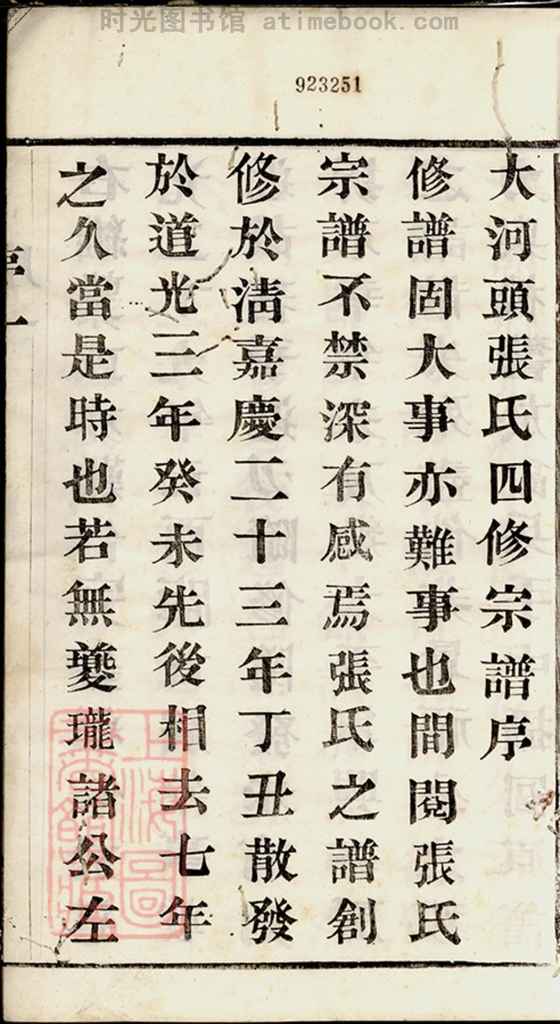 时光图书馆 atimebook.com
923251
大河頭張氏四修宗譜序
修譜固大事亦難事也間閱張氏
宗譜不禁深有感焉張氏之譜創
修於清嘉慶二十三年丁丑散發
於道光三年癸未先後相去七年
之久當是時也若無夔瓏諸公左
序一